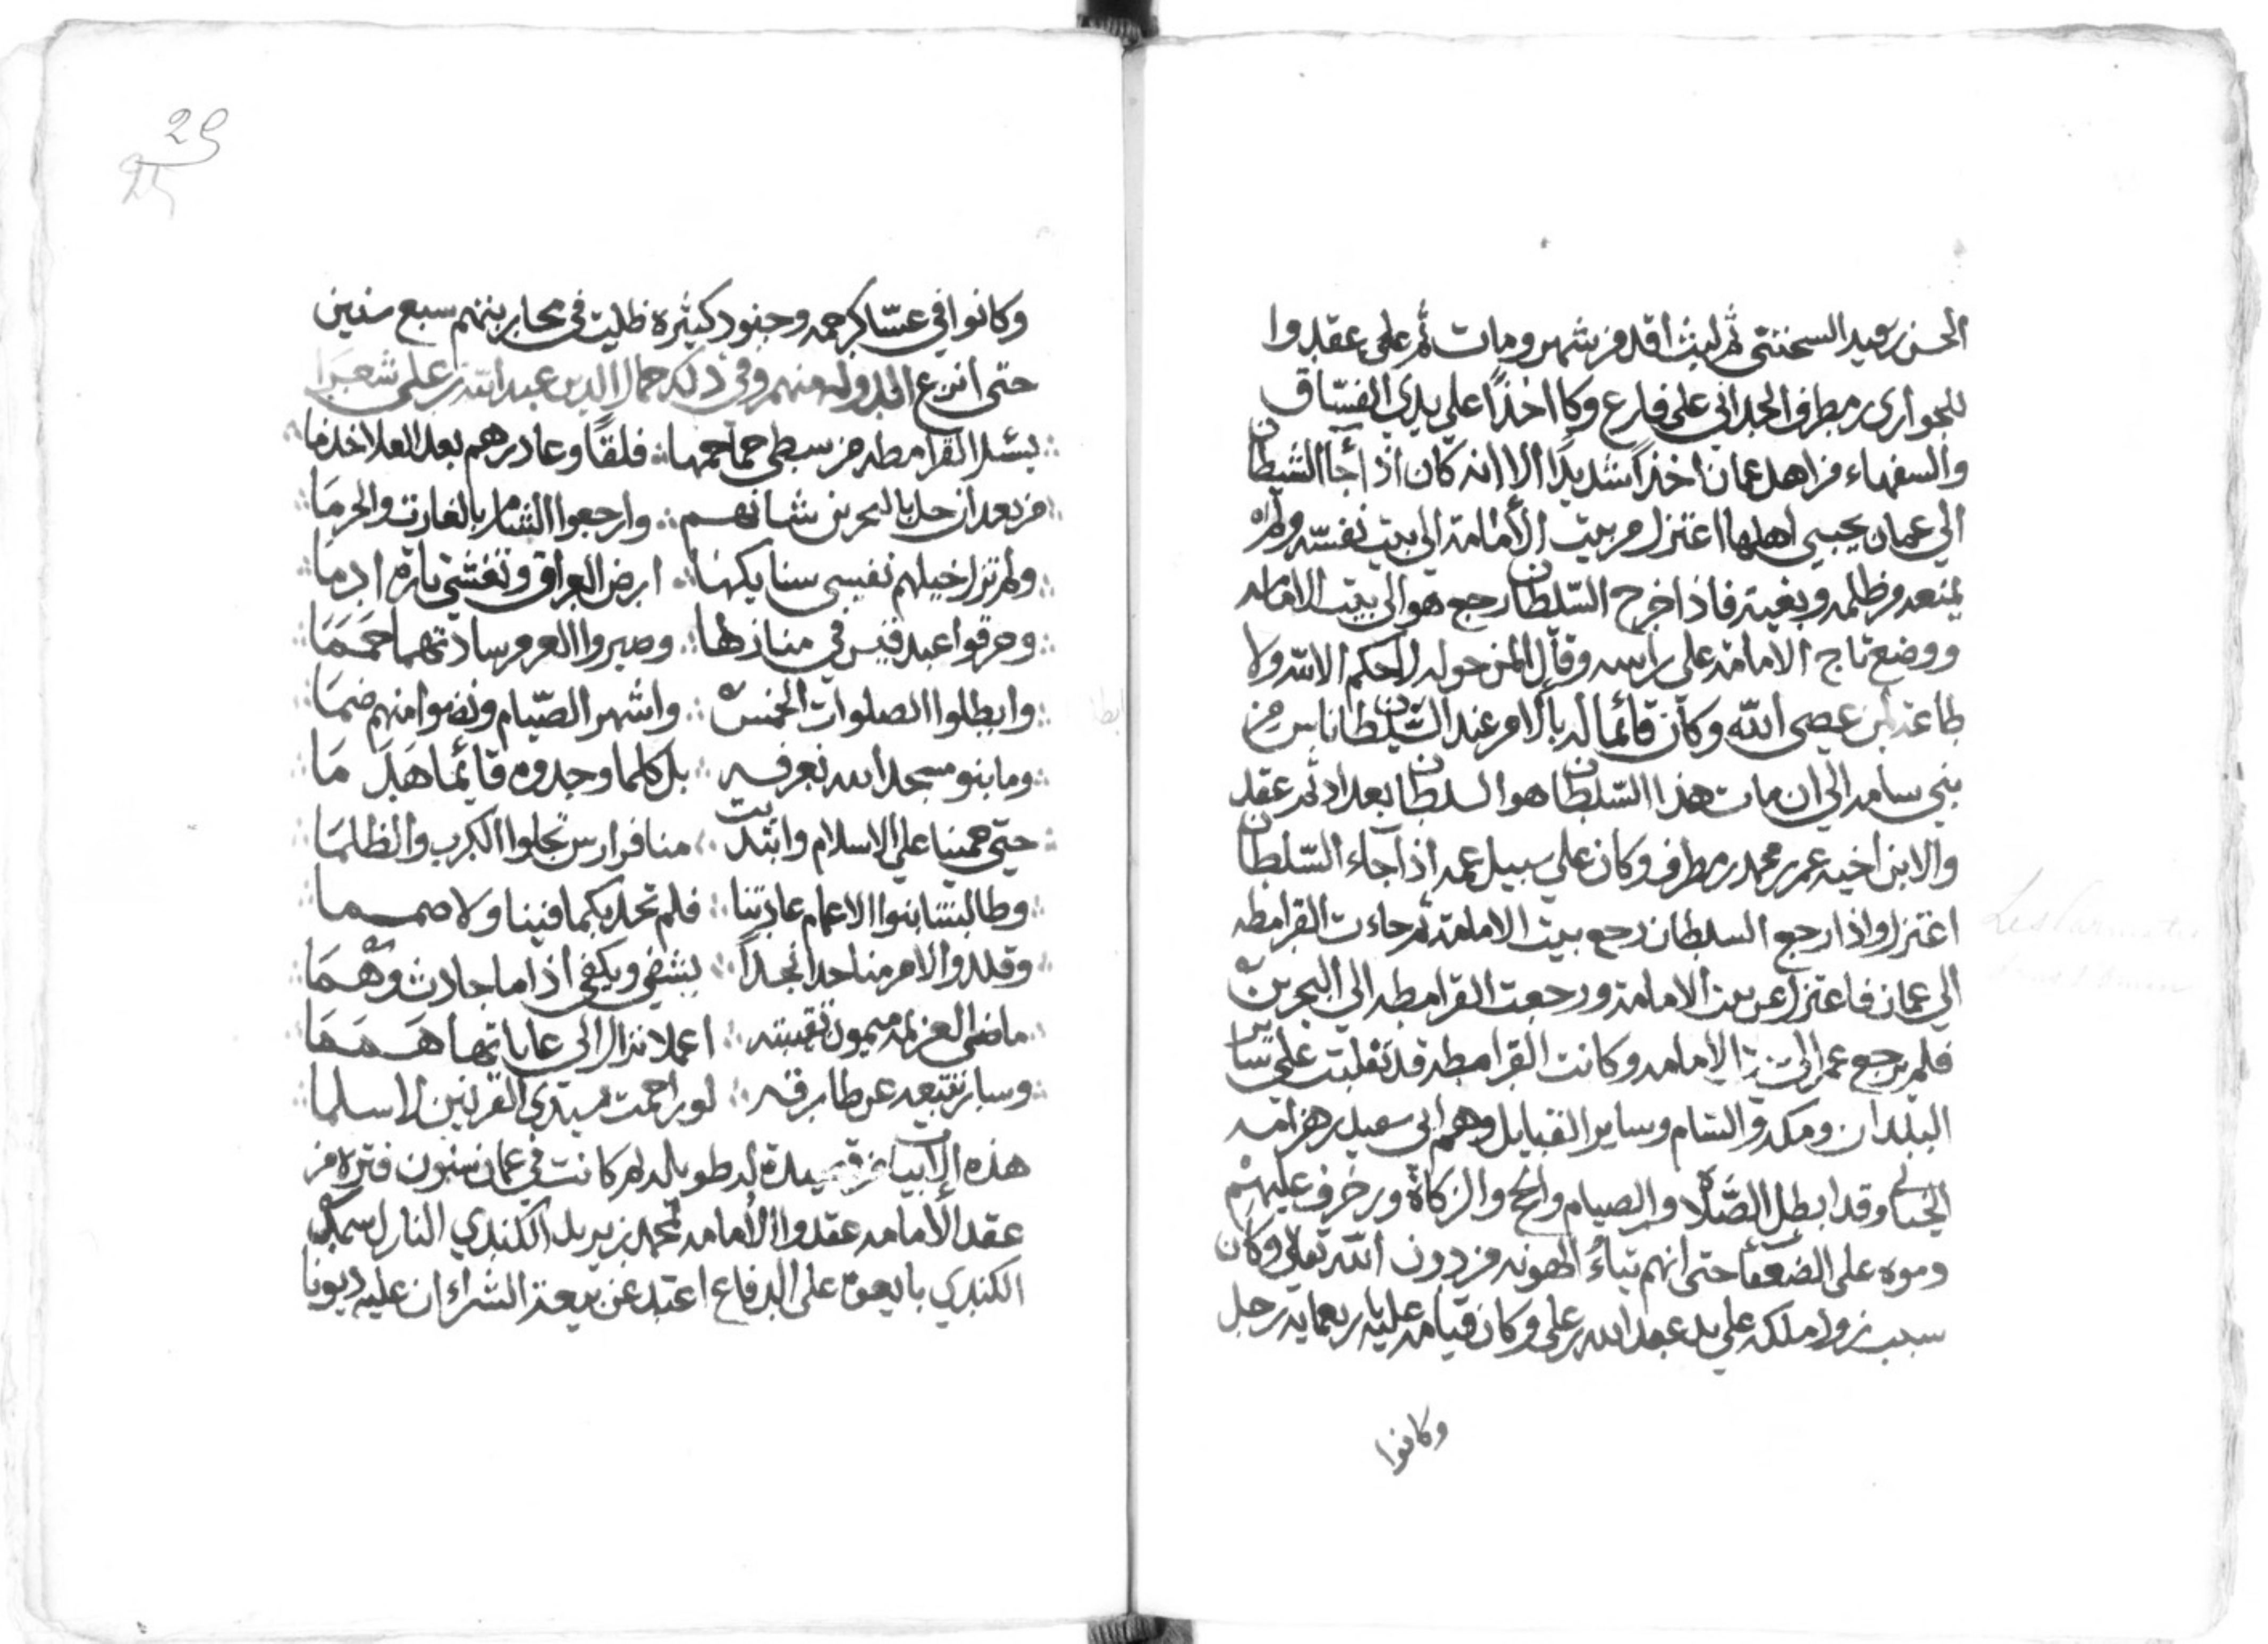 الحسن بن سعيد السحتني ثم لبث اقل من شهر ومات ثم على عقدوا
للحواري بن مطرف الحداني على فارع وكا اخذًا على يدي الفسّاق
والسفهاء من اهل عمان اخذًا شديدًا الا انه كان اذا جآا الشيطان
الي عمان يجبي اهلها اعتزل من بيت الأمامة الي بيت نفسه ولم
يمنعه من ظلمه وبغيه فاذا خرج السّلطان رجع هو الي بيت الامامه
ووضع تاج الامامة على راسه وقال لمن حوله لا حكم الا لله ولا
طاعة لمن عصى الله وكان قائما له بالامر عند السّلطان ناس من
بني سامه الي ان مات هذا السّلطان هو السلطان بعداد ثم عقد
والابن اخيه عمر بن محمد بن مطرف وكان علي سبيل عمه اذا جآء السّلطان
اعتزل واذا رجع السلطان رجع بيت الامامة ثم جاءت القرامطه
الي عمان فاعتزل عن بيت الامامة ورجعت القرامطه الي البحرين
فلم يرجع عمر الي بيت الامامه وكانت القرامطه قد تغلبت علي سائر
البلدان ومكه والشام وساير القبايل وهم ابي سعيد بن هرامه
الجنابي وقد ابطل الصّلاة والصيام والحج والزكاة وزخرف عليهم
وموه على الضعفآء حتى انهم تباءُ الهونه من دون الله تعالي وكان
سبب زوال ملكه علي يد عبد الله بن علي وكان قيامه عليه باربعمايه رجل
وكانوا
29
25
وكانوا في عسّاكر جمه وجنود كثيره ظليت في محاربتهم سبع سنين
حتى انزع الدوله منهم وفي ذلك جمال الدين عبد الله بن علي شعرًا
سئل القرامطه من سطي جماجمها فلقًا وعادرهم بعد العلا خدما
من بعد ان حل بالبحرين شانهم وارجعوا الشام بالغارت والحرمَا
ولم تزل خيلهم تغسي سنايكها ارض العراق وتغشي تارة ادمَا
وحرقوا عبد قيس في منازلها وصيروا العر من ساداتهما حمَمَا
وابطلوا الصلوات الخمس واشهر الصّيام ونضوا منهم ضمَا
وما بنو مسجدا لله نعرفه بل كلما وجدوه قائما هَدَ مَا
حتي حمينا علي الاسلام وانتدبت منا فوارس تجلوا الكرب والظلمَا
وطالبتنا بنوا الاعمام عادتنا فلم تجد بكما فينا ولا صمما
وقلدوا الامر منا حدا نجدًا يشفي ويكفي اذا ما حادث دهَمَا
ماضي العزيمة ميمون نقيبته اعلا نزال الي غاياتها هَمَمَا
وسار تتبعه عر طارقه لو راحمت سدي القرنين لا سلما
هذه الابيات من قصيدة له طويله ثم كانت في عمان سنون فترة من
عقد الأمامه عقدوا الأمامه لمحمد بن يزيد الكندي النازل سمد
الكندي بايعوه على الدفاع اعتدر عن بيعة الشراء ان عليه ديونا